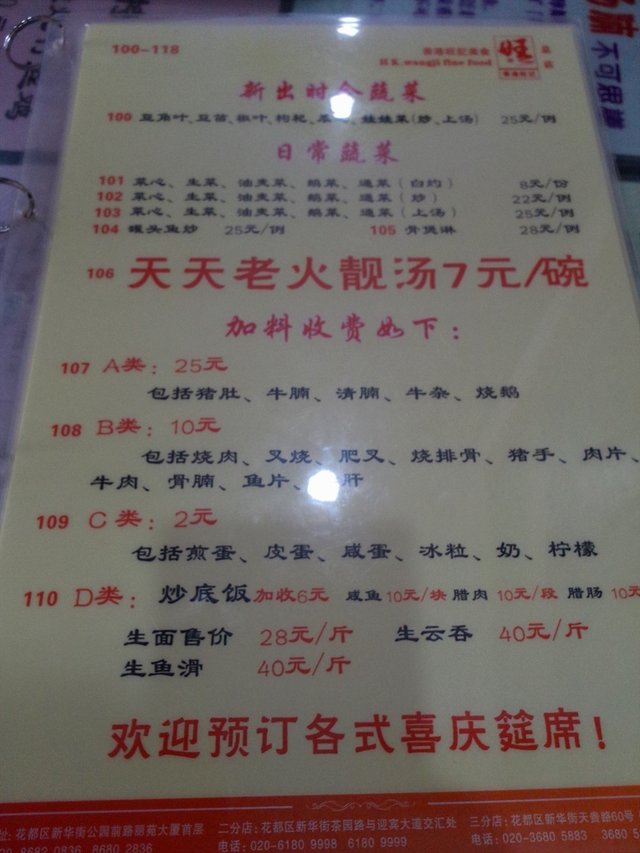 100-118
香港旺记美食
H K.wangji fine food
旺
新出时令蔬菜
100 豆角叶、豆苗、椒叶、枸杞、娃娃菜(炒、上汤) 25元/例
日常蔬菜
101 菜心、生菜、油麦菜、鹅菜、通菜(白灼) 8元/份
102 菜心、生菜、油麦菜、鹅菜、通菜(炒) 22元/例
103 菜心、生菜、油麦菜、鹅菜、通菜(上汤) 25元/例
104 罐头鱼炒 25元/例 105 骨煲淋 28元/例
106 天天老火靓汤7元/碗
加料收费如下:
107 A类: 25元
包括猪肚、牛腩、清腩、牛杂、烧鹅
108 B类: 10元
包括烧肉、叉烧、肥叉、烧排骨、猪手、肉片、
牛肉、骨腩、鱼片、肝
109 C类: 2元
包括煎蛋、皮蛋、咸蛋、冰粒、奶、柠檬
110 D类: 炒底饭加收6元 咸鱼10元/块 腊肉 10元/段 腊肠 10元
生面售价 28元/斤 生云吞 40元/斤
生鱼滑 40元/斤
欢迎预订各式喜庆筵席!
址: 花都区新华街公园前路丽苑大厦首层 二分店: 花都区新华街茶园路与迎宾大道交汇处 三分店: 花都区新华街天贵路60号
8682 0836 8680 2836 电话: 020-6180 9998 6180 9999 电话: 020-3680 5883 3680
不可思议